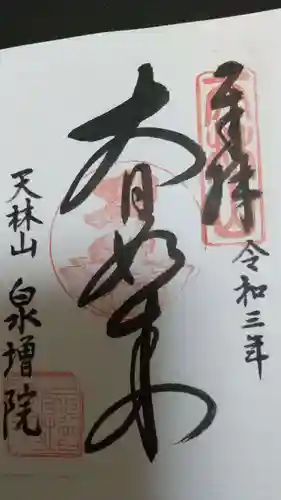 奉拝
令和三年
大日如来
天林山
泉増院